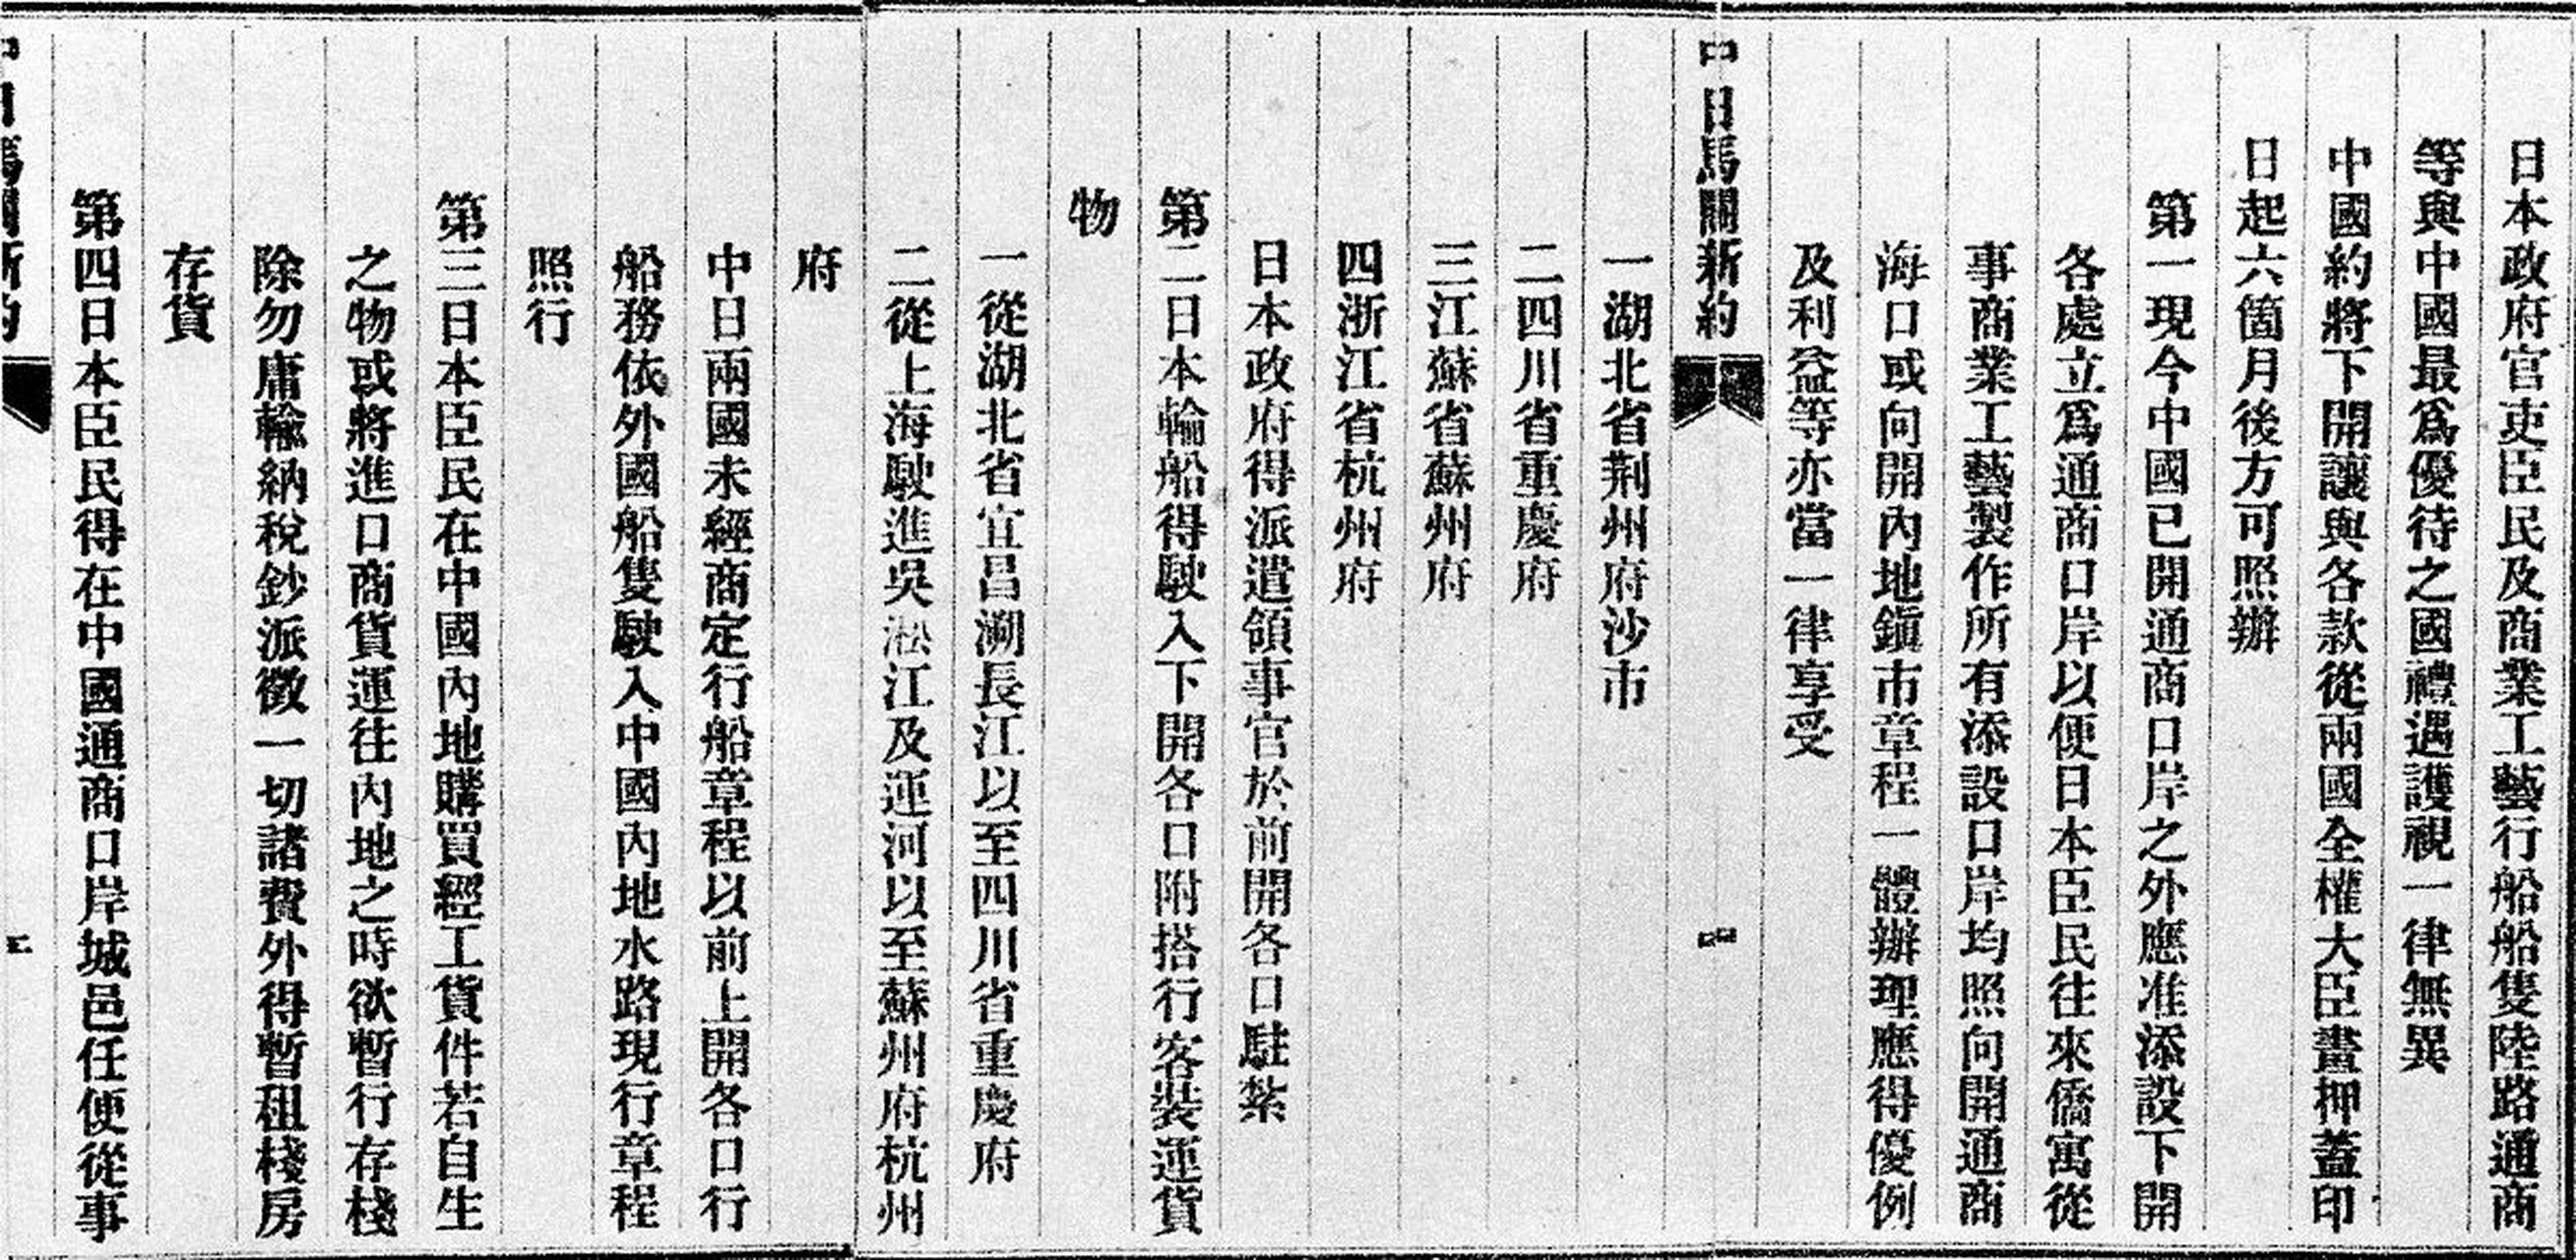 日本政府官吏臣民及商業工藝行船船隻陸路通商
等與中國最爲優待之國禮遇護視一律無異
中國約將下開讓與各款從兩國全權大臣畫押蓋印
日起六箇月後方可照辦
第一現今中國已開通商口岸之外應准添設下開
各處立爲通商口岸以便日本臣民往來僑寓從
事商業工藝製作所有添設口岸均照向開通商
海口或向開內地鎭市章程一體辦理應得優例
及利益等亦當一律享受
中日馬關新約
一湖北省荆州府沙市
二四川省重慶府
三江蘇省蘇州府
四浙江省杭州府
日本政府得派遣領事官於前開各口駐紮
第二日本輪船得駛入下開各口附搭行客裝運貨
物
一從湖北省宜昌溯長江以至四川省重慶府
二從上海駛進吳淞江及運河以至蘇州府杭州
府
中日兩國未經商定行船章程以前上開各口行
船務依外國船隻駛入中國內地水路現行章程
照行
第三日本臣民在中國內地購買經工貨件若自生
之物或將進口商貨運往內地之時欲暫行存棧
除勿庸輸納稅鈔派徵一切諸費外得暫租棧房
存貨
第四日本臣民得在中國通商口岸城邑任便從事